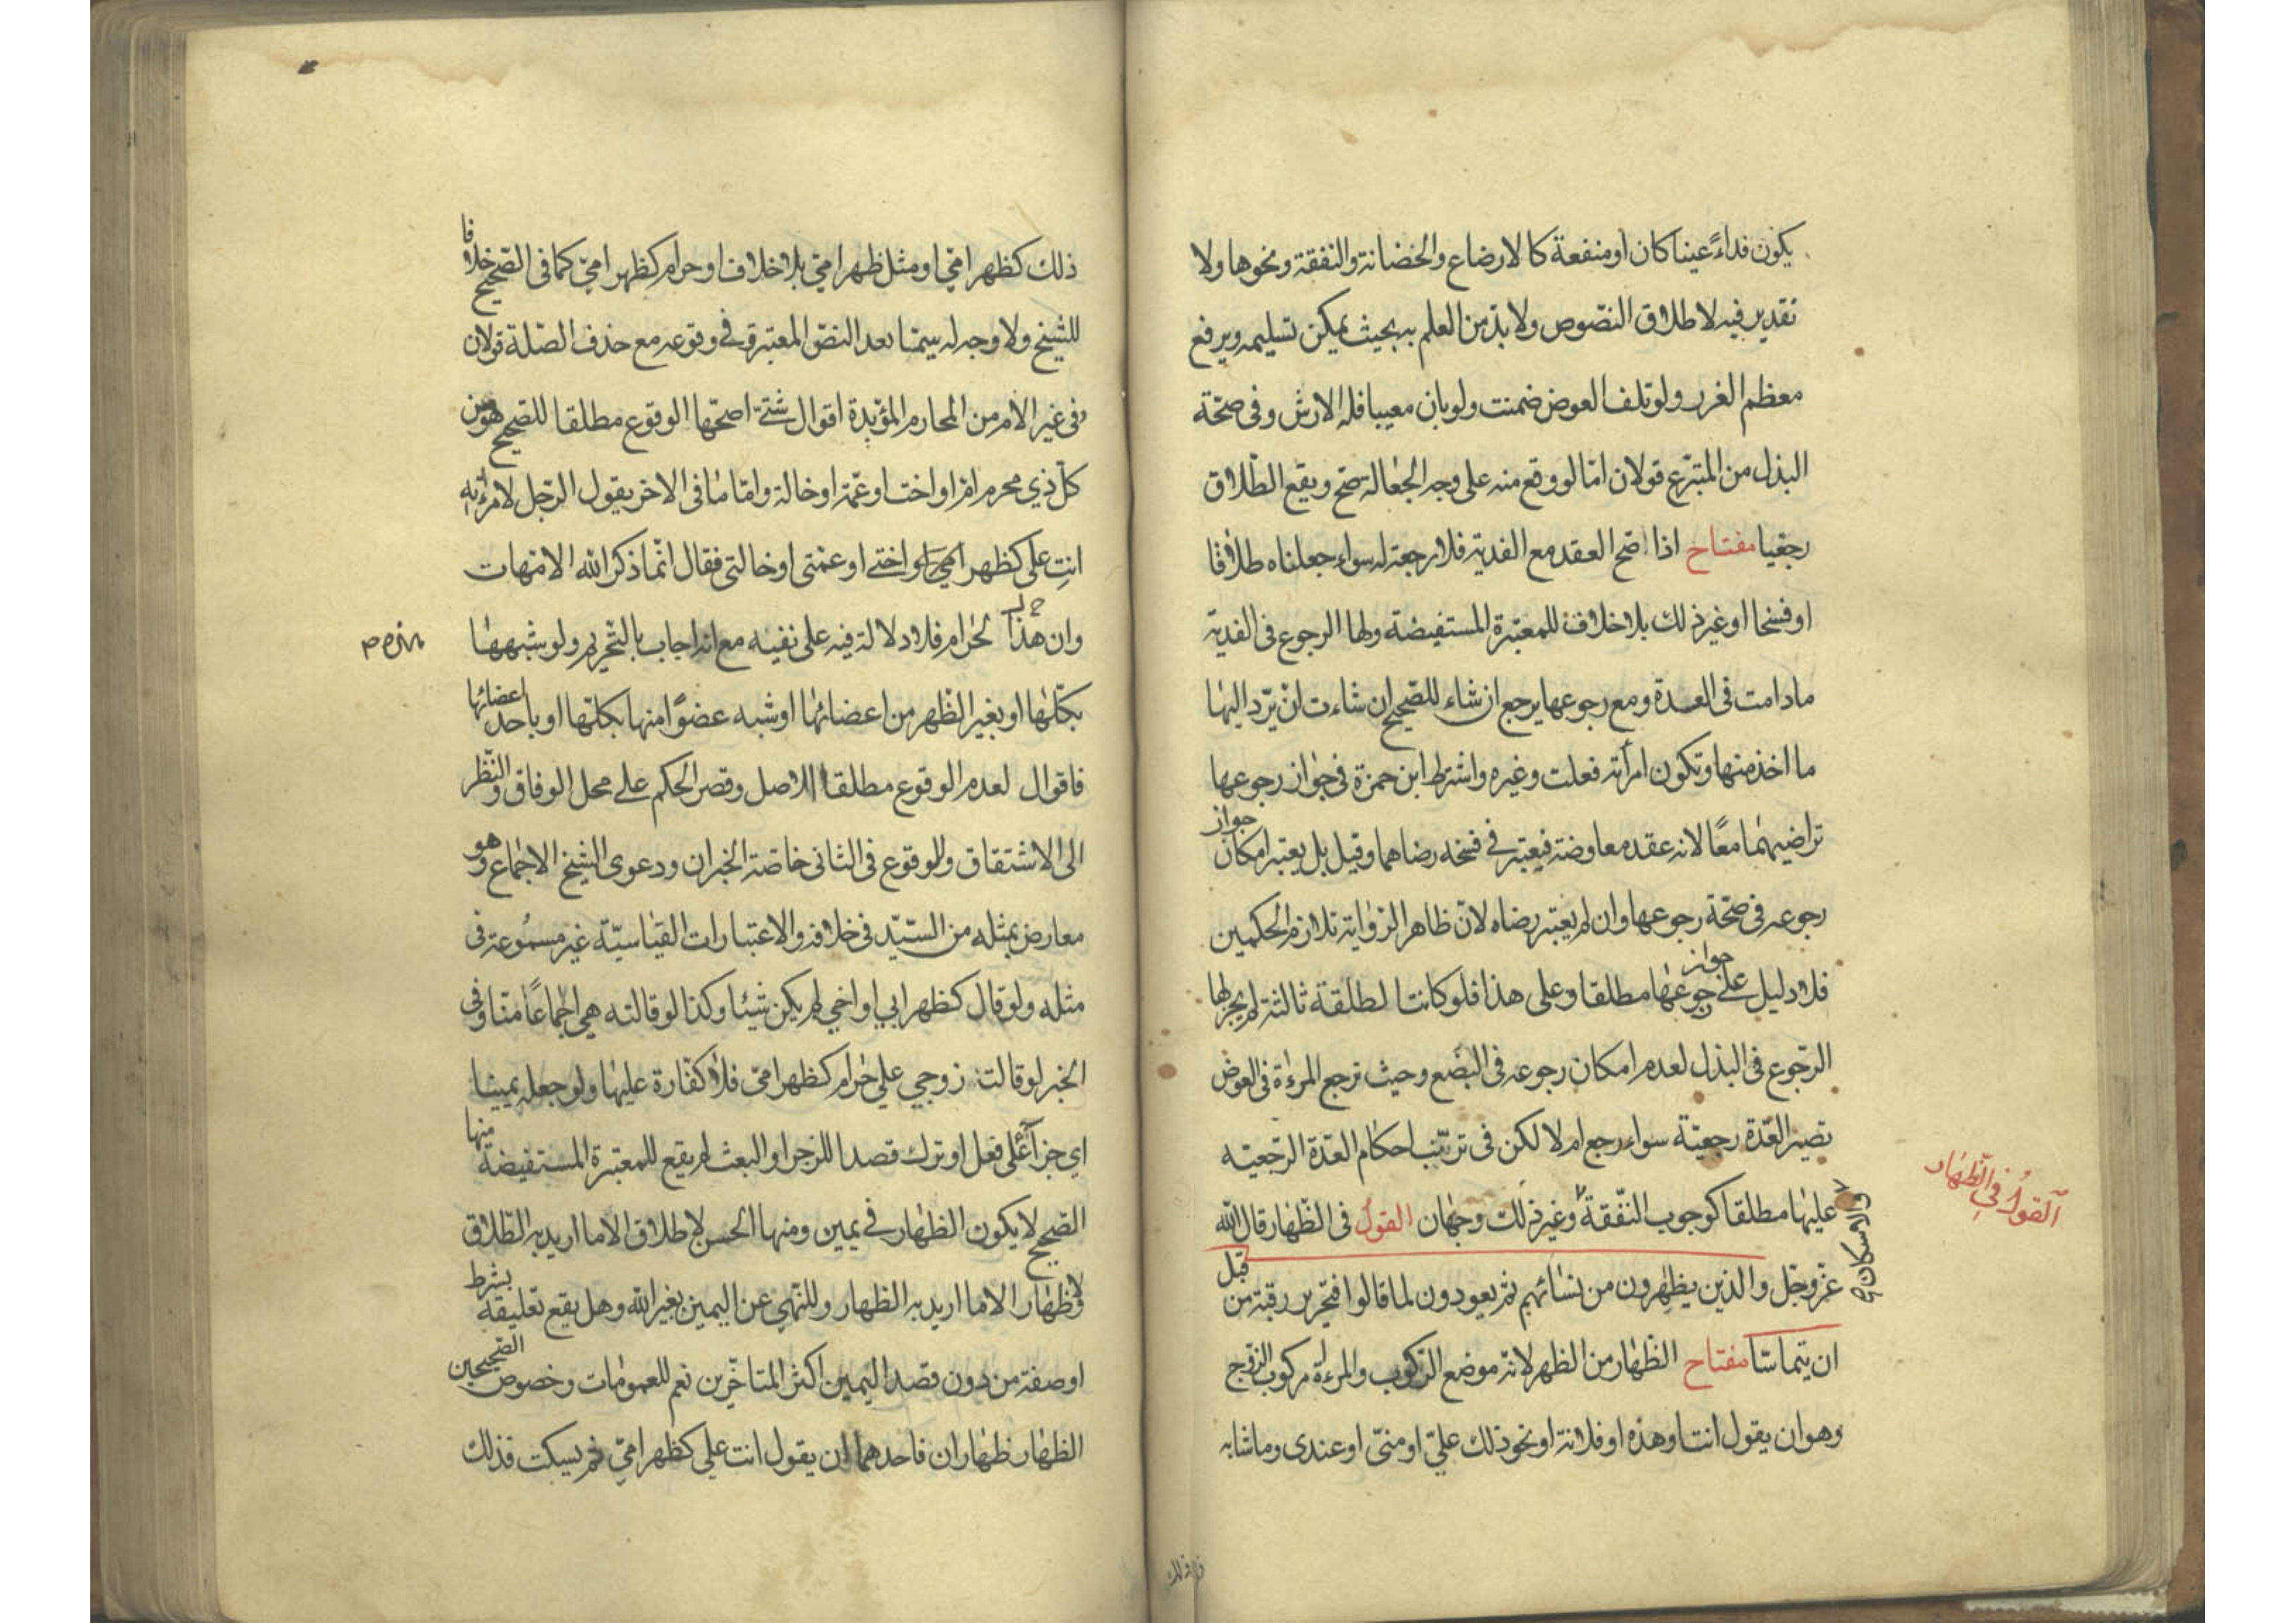 يكون فداءً عينا كان او منفعة كالارضاع والحضانة والنفقة ونحوها ولا
تقدير فيه لاطلاق النصّوص ولا بدّ من العلم به بحيث يمكن تسليمه ويرفع
معظم الغرر ولو تلف العوض ضمنت ولو بان معيبا فله الارش وفى صحّة
البذل من المتبرّع قولان امّا لو وقع منه على وجه الجعالة صحّ ويقع الطّلاق
رجعيا مفتاح اذا صح العقد مع الفدية فلا رجعة له سواء جعلناه طلاقا
او فسخا او غير ذلك بلا خلاف للمعتبرة المستفيضة ولها الرجوع فى الفدية
مادامت فى العدة ومع رجوعها يرجع ان شاء للصّحيح ان شاءت ان يردّ اليها
ما اخذ منها وتكون امرأته فعلت وغيره واشترط ابن حمزة فى جواز رجوعها
تراضيهما معًا لانه عقد معاوضة فيعتبر فى فسخه رضاهما وقيل بل يعتبر امكان جواز
رجوعه فى صحّة رجوعها وان لم يعتبر رضاه لانّ ظاهر الرّواية تلازم الحكمين
فلا دليل على جواز رجوعها مطلقا وعلى هذا فلو كانت الطلقة ثالثة لم يجز لها
الرّجوع فى البذل لعدم امكان رجوعه فى البضع وحيث ترجع المرءة فى العوض
تصير العّدة رجعيّة سواء رجع ام لا لكن فى ترتّب احكام العدّة الرّجعيّه
عليها مطلقا كوجوب النّفقة وغير ذلك وجهان القول فى الظّهار قال الله
والاسكان
القول فى الظهار
عزّ وجّل والذين يظهرون من نسائهم ثم يعودون لما قالوا فتحرير رقبة من قبل
ان يتماسّا مفتاح الظّهار من الظهر لانّه موضع الرّكوب والمرءة مركوب الزّوج
وهو ان يقول انت او هذه او فلانة او نحو ذلك عليّ او منّى او عندى وما شابه
ذلك كظهر امّي او مثل ظهر امّي بلا خلاف او حرام كظهر امّي كما فى الصّحيح خلافا
للشيخ ولا وجه له سيّما بعد النصّ المعتبر وفى وقوعه مع حذف الصّلة قولان
وفى غير الام من المحارم المؤبّدة اقوال شتّى اصحّها الوقوع مطلقا للصحيح هو من
كلّ ذي محرم امّ او اخت او عمّة او خالة وامّا ما فى الاخر يقول الرّجل لامرءته
انتِ على كظهر امي او اختى او عمّتى او خالتى فقال انّما ذكر الله الامّهات
وان هذا لحرام فلا دلالة فيه على نفيه مع انه اجاب بالتّحريم ولو شبّهها
بكلّها او بغير الظّهر من اعضائها او شبه عضوًا منها بكلّها او باحد اعضائها
فاقوال لعدم الوقوع مطلقا الاصل وقصر الحكم على محل الوفاق والنّظر
الى الاشتقاق وللوقوع فى الثانى خاصّة الخبران ودعوى الشيخ الاجماع وهو
معارض بمثله من السّيّد فى خلافه والاعتبارات القياسيّة غير مسموعة فى
مثله ولو قال كظهر ابي او اخي لم يكن شيئا وكذا لو قالته هي اجماعًا منّا وفى
الخبر لو قالت زوجي عليّ حرام كظهر امّى فلا كفّارة عليها ولو جعله يمينا
اي جزاءً على فعل او ترك قصدا للزجر او البعث لم يقع للمعتبرة المستفيضة منها
الصّحيح لا يكون الظهار فى يمين ومنها الحسن لا طلاق الا ما اريد به الطّلاق
ولا ظهار الا ما اريد به الظهار وللنّهي عن اليمين بغير الله وهل يقع تعليقه بشرط
او صفة من دون قصد اليمين اكثر المتاخّرين نعم للعمومات وخصوص الصّحيحين
الظهار ظهاران فاحدهما ان يقول انت على كظهر امّي ثم يسكت فذلك